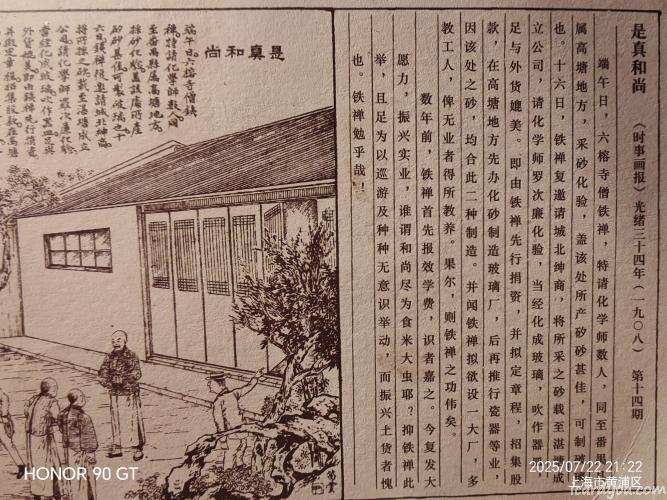 是真和尚 《时事画报》光绪三十四年(一九〇八) 第十四期
端午日,六榕寺僧铁禅,特请化学师数人,同至番禺
属高塘地方,采砂化验,盖该处所产矽砂甚佳,可制玻
也。十六日,铁禅复邀请城北绅商,将所采之砂载至湛成
立公司,请化学师罗次廉化验,当经化成玻璃,吹作器
足与外货媲美。即由铁禅先行捐资,并拟定章程,招集股
款,在高塘地方先办化砂制造玻璃厂,后再推行瓷器等业,
因该处之砂,均合此二种制造。并闻铁禅拟欲设一大厂,多
教工人,俾无业者得所教养。果尔,则铁禅之功伟矣。
数年前,铁禅首先报效学费,识者嘉之。今复发大
愿力,振兴实业,谁谓和尚尽为食米大虫耶?抑铁禅此
举,且足为以巡游及种种无意识举动,而振兴土货者愧
也。铁禅勉乎哉!
是真和尚
端午日。六榕寺僧鐵
禪。特請化學師數人。同
至番禺縣屬高塘地方。
採砂化驗。蓋該處所產
矽砂甚佳。可製玻璃也。十
六日。鐵禪復邀請城北紳商。
將所採之砂。載至湛塘成立
公司。請化學師羅次廉化驗。
當經化成玻璃。吹作器皿。足與
外貨媲美。即由鐵禪先行捐資。
并擬定章程。招集股款。在高塘
HONOR 90 GT
2025/07/22 21:22
上海市黄浦区